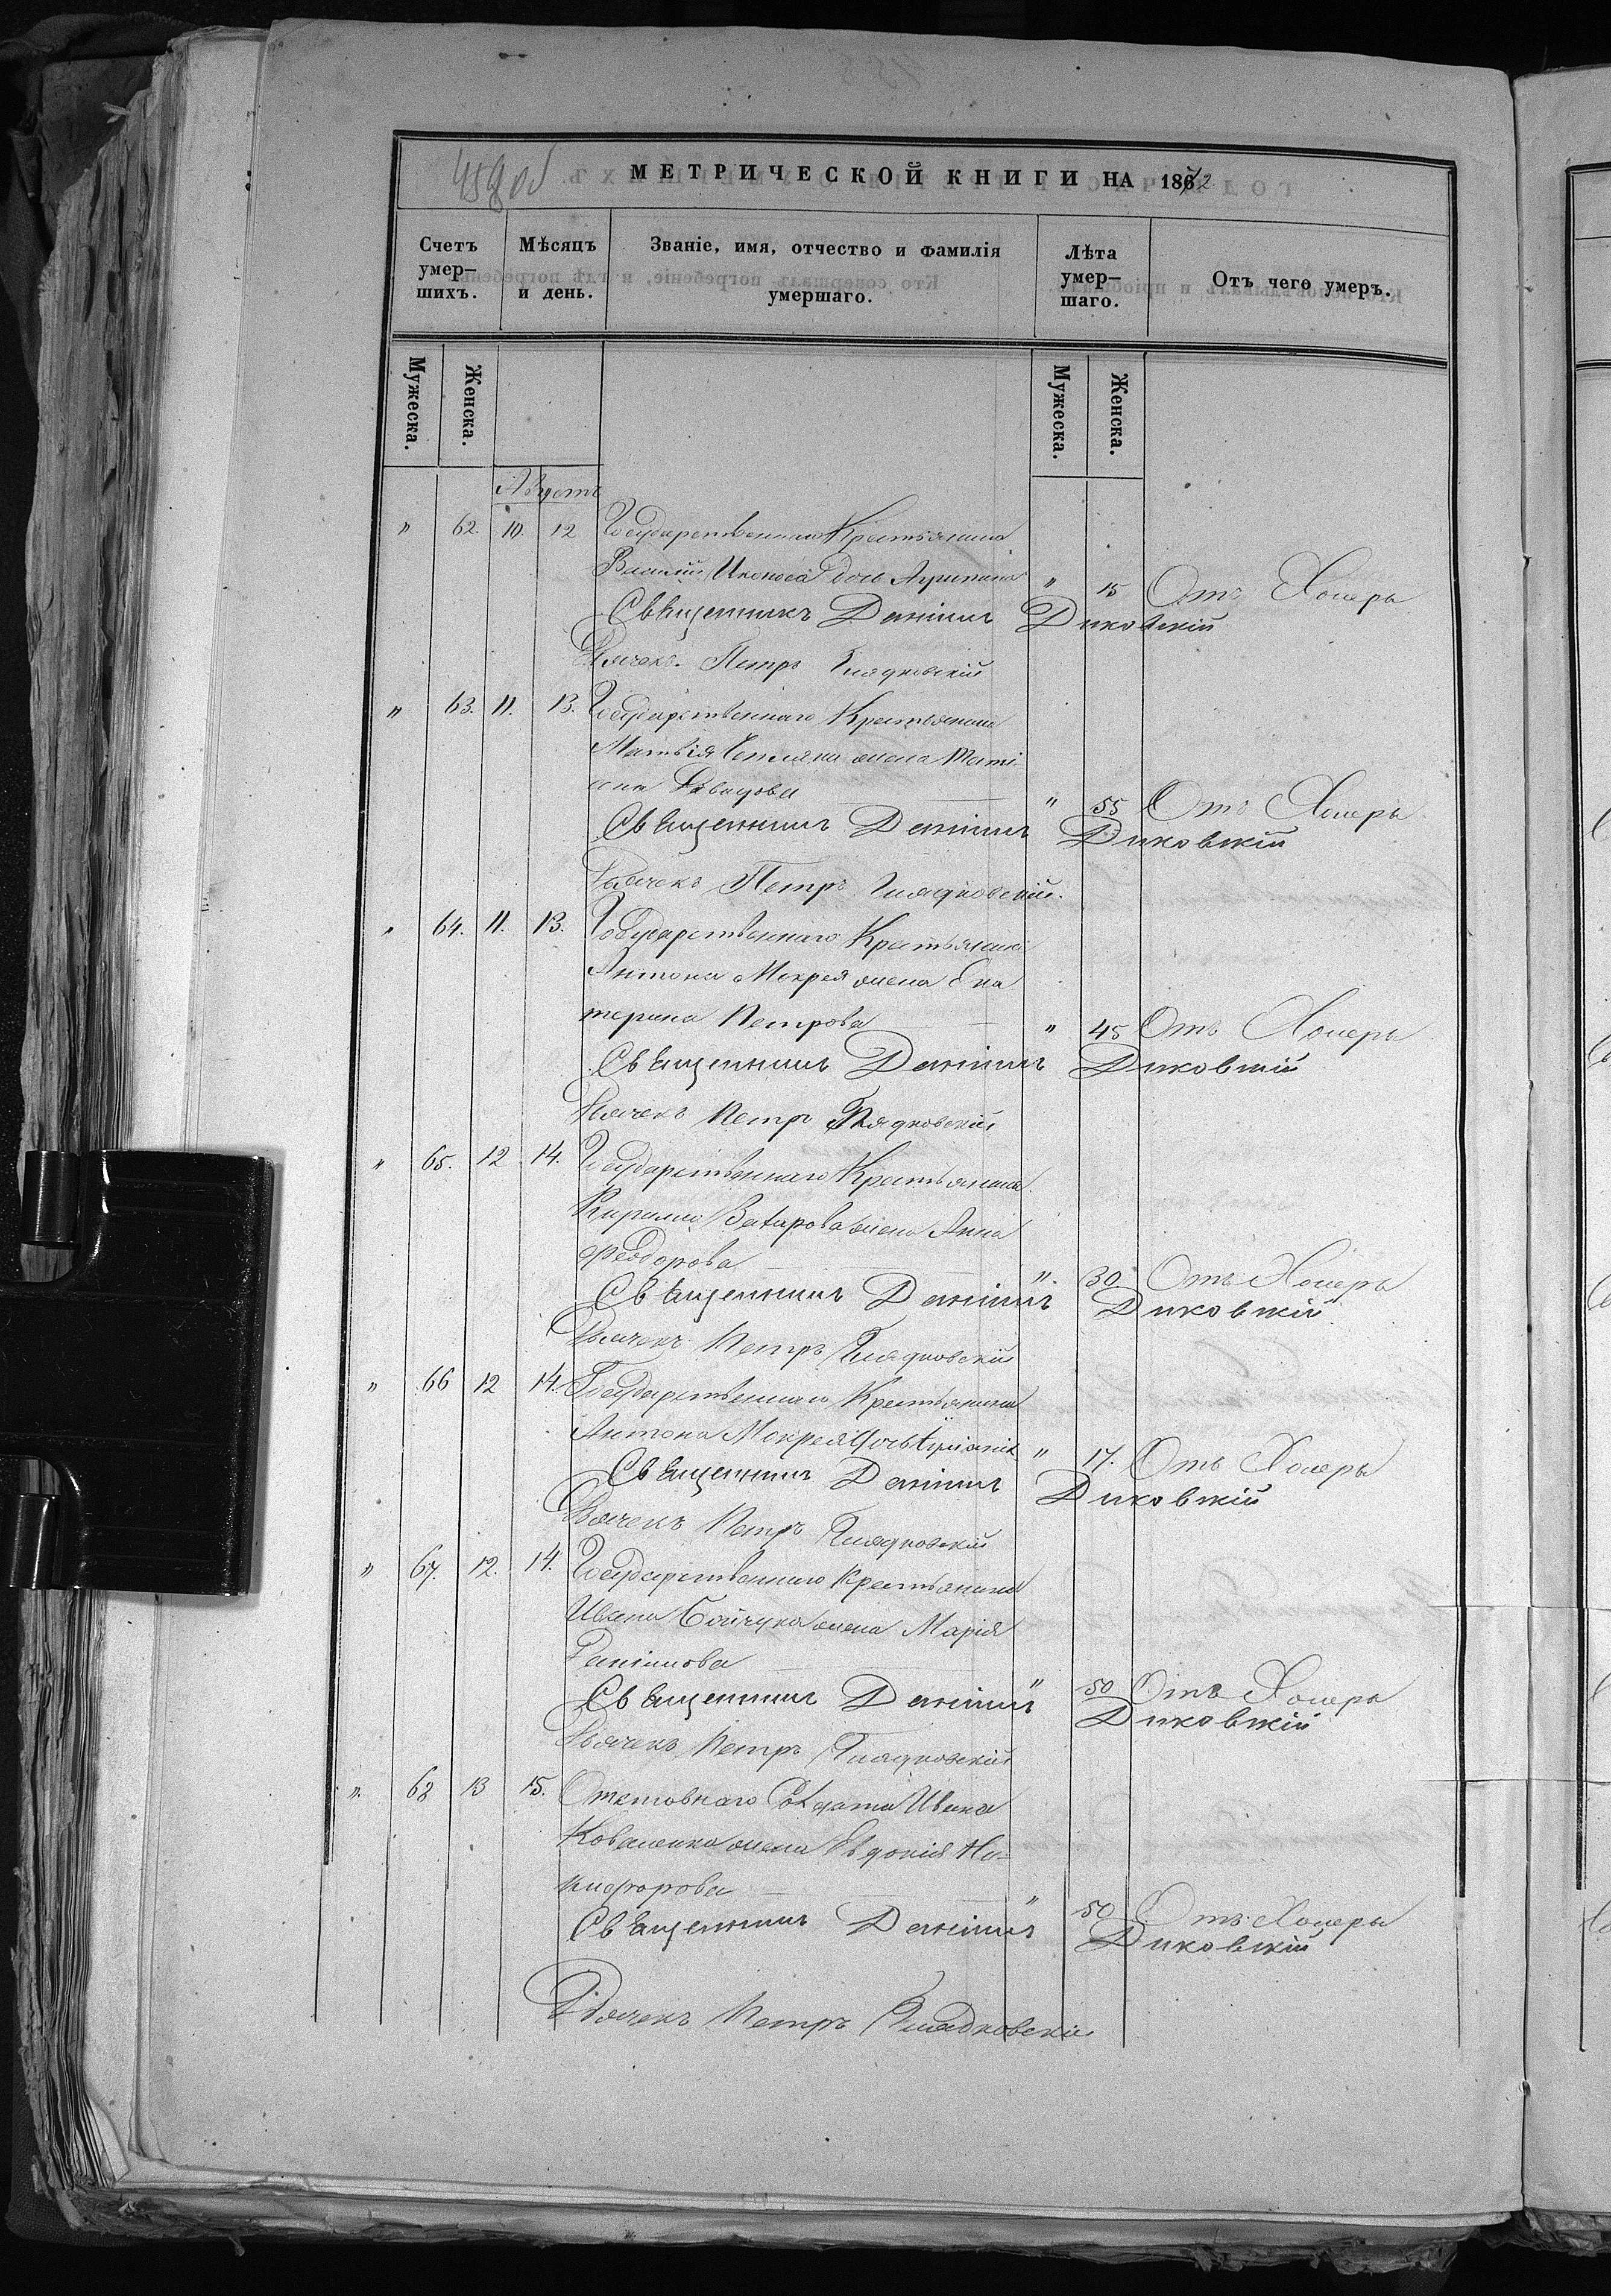 458 об
МЕТРИЧЕСКОЙ КНИГИ НА 1872
Счетъ умер-шихъ.
Мѣсяцъ и день.
Званіе, имя, отчество и фамилія умершаго.
Лѣта умер-шаго.
Отъ чего умеръ.
Мужеска.
Женска.
Мужеска.
Женска.
Августъ
" 62. 10. 12 Государственнаго Крестьянина
Василія дочь Агрипина " 15 Отъ Холеры
Священникъ Даніилъ Диковскій
Дьячекъ Петръ Гладковскій
" 63. 11. 13. Государственнаго Крестьянина
Матвія жена Таті
ана Давидова " 55 Отъ Холеры
Священникъ Даніилъ Диковскій
Дьячекъ Петръ Гладковскій.
" 64. 11. 13. Государственнаго Крестьянина
Антона Мокрея жена Ека
терина Петрова " 45 Отъ Холеры
Священникъ Даніилъ Диковскій
Дьячекъ Петръ Гладковскій
" 65. 12 14. Государственнаго Крестьянина
Кирилла жена Анна
Феодорова " 30 Отъ Холеры
Священникъ Даніилъ Диковскій
Дьячекъ Петръ Гладковскій
" 66 12 14. Государственнаго Крестьянина
Антона Мокрея дочь " 17. Отъ Холеры
Священникъ Даніилъ Диковскій
Дьячекъ Петръ Гладковскій
" 67. 12. 14. Государственнаго Крестьянина
Ивана Бойчука жена Марія
Даніилова " 50 Отъ Холеры
Священникъ Даніилъ Диковскій
Дьячекъ Петръ Гладковскій
" 68 13 15. Отставнаго Солдата Ивана
Коваленка жена Евдокія Ни-
кифорова " 50 Отъ Холеры
Священникъ Даніилъ Диковскій
Дьячекъ Петръ Гладковскій